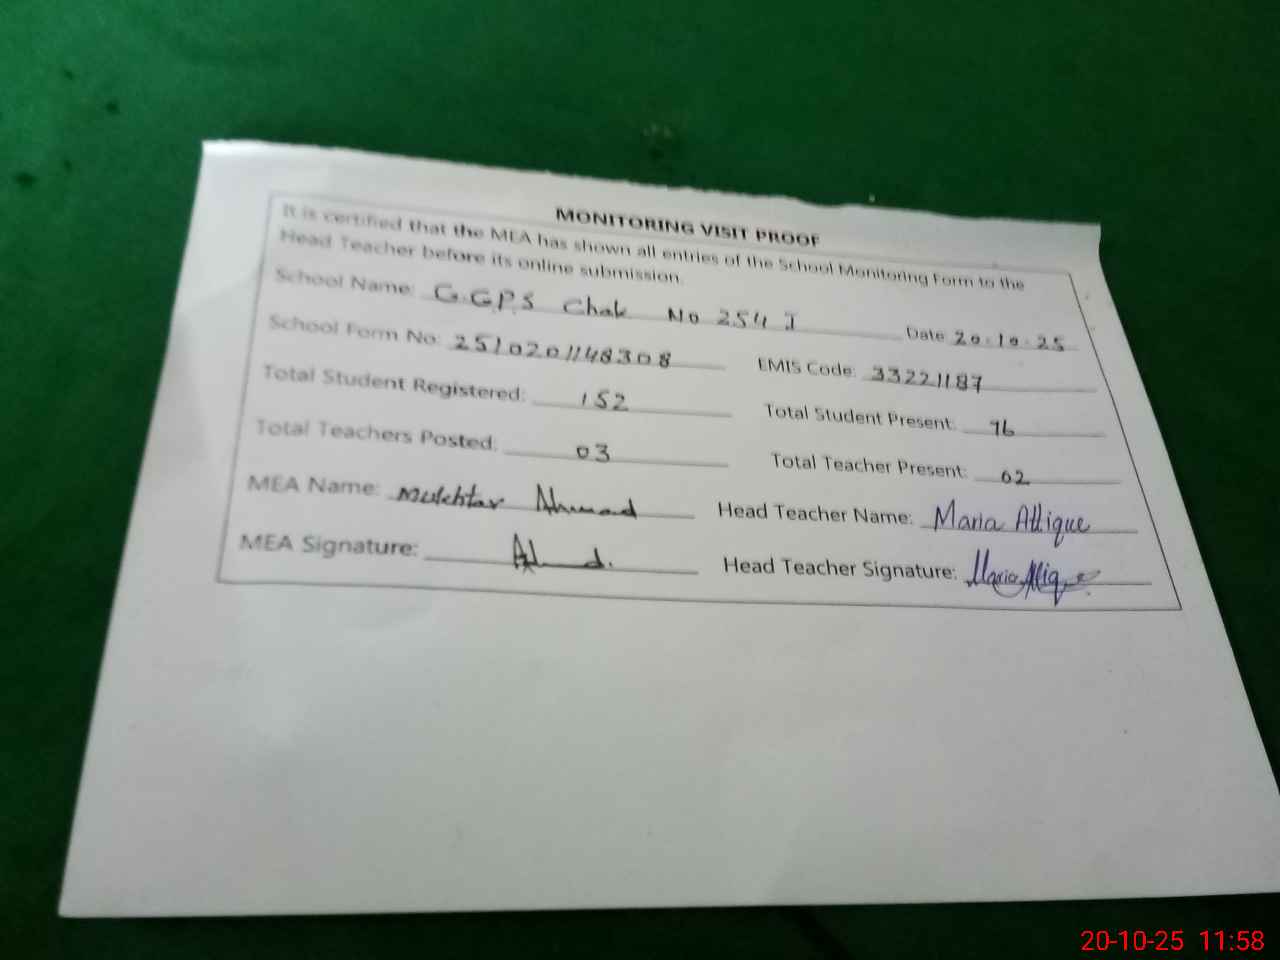 MONITORING VISIT PROOF
It is certified that the MEA has shown all entries of the School Monitoring Form to the
Head Teacher before its online submission.
School Name: G.G.P.S Chak No 254 J Date 20.10.25
School Form No: 2510201148308 EMIS Code: 33221187
Total Student Registered: 152 Total Student Present: 76
Total Teachers Posted: 03 Total Teacher Present: 02
MEA Name: Mukhtar Ahmad Head Teacher Name: Maria Attique
MEA Signature: Ahmad. Head Teacher Signature: Maria Attique
20-10-25 11:58